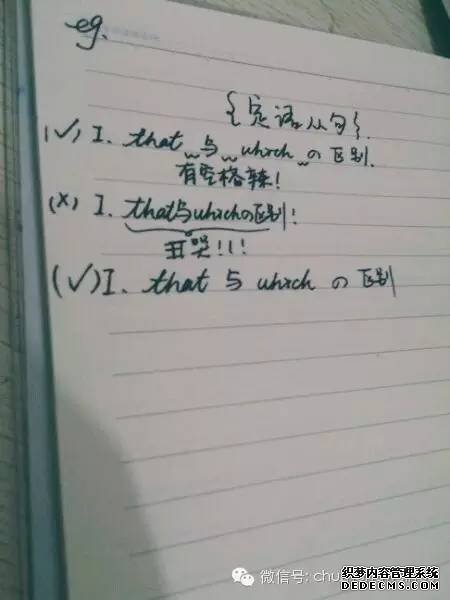 eg.
{定语从句}.
(√) I. that 与 which の区别.
有空格辣!
(×) I. that与whichの区别!
丑哭!!!
(√) I. that 与 which の区别
微信号: chu
织梦内容管理系统
DEDECMS.COM